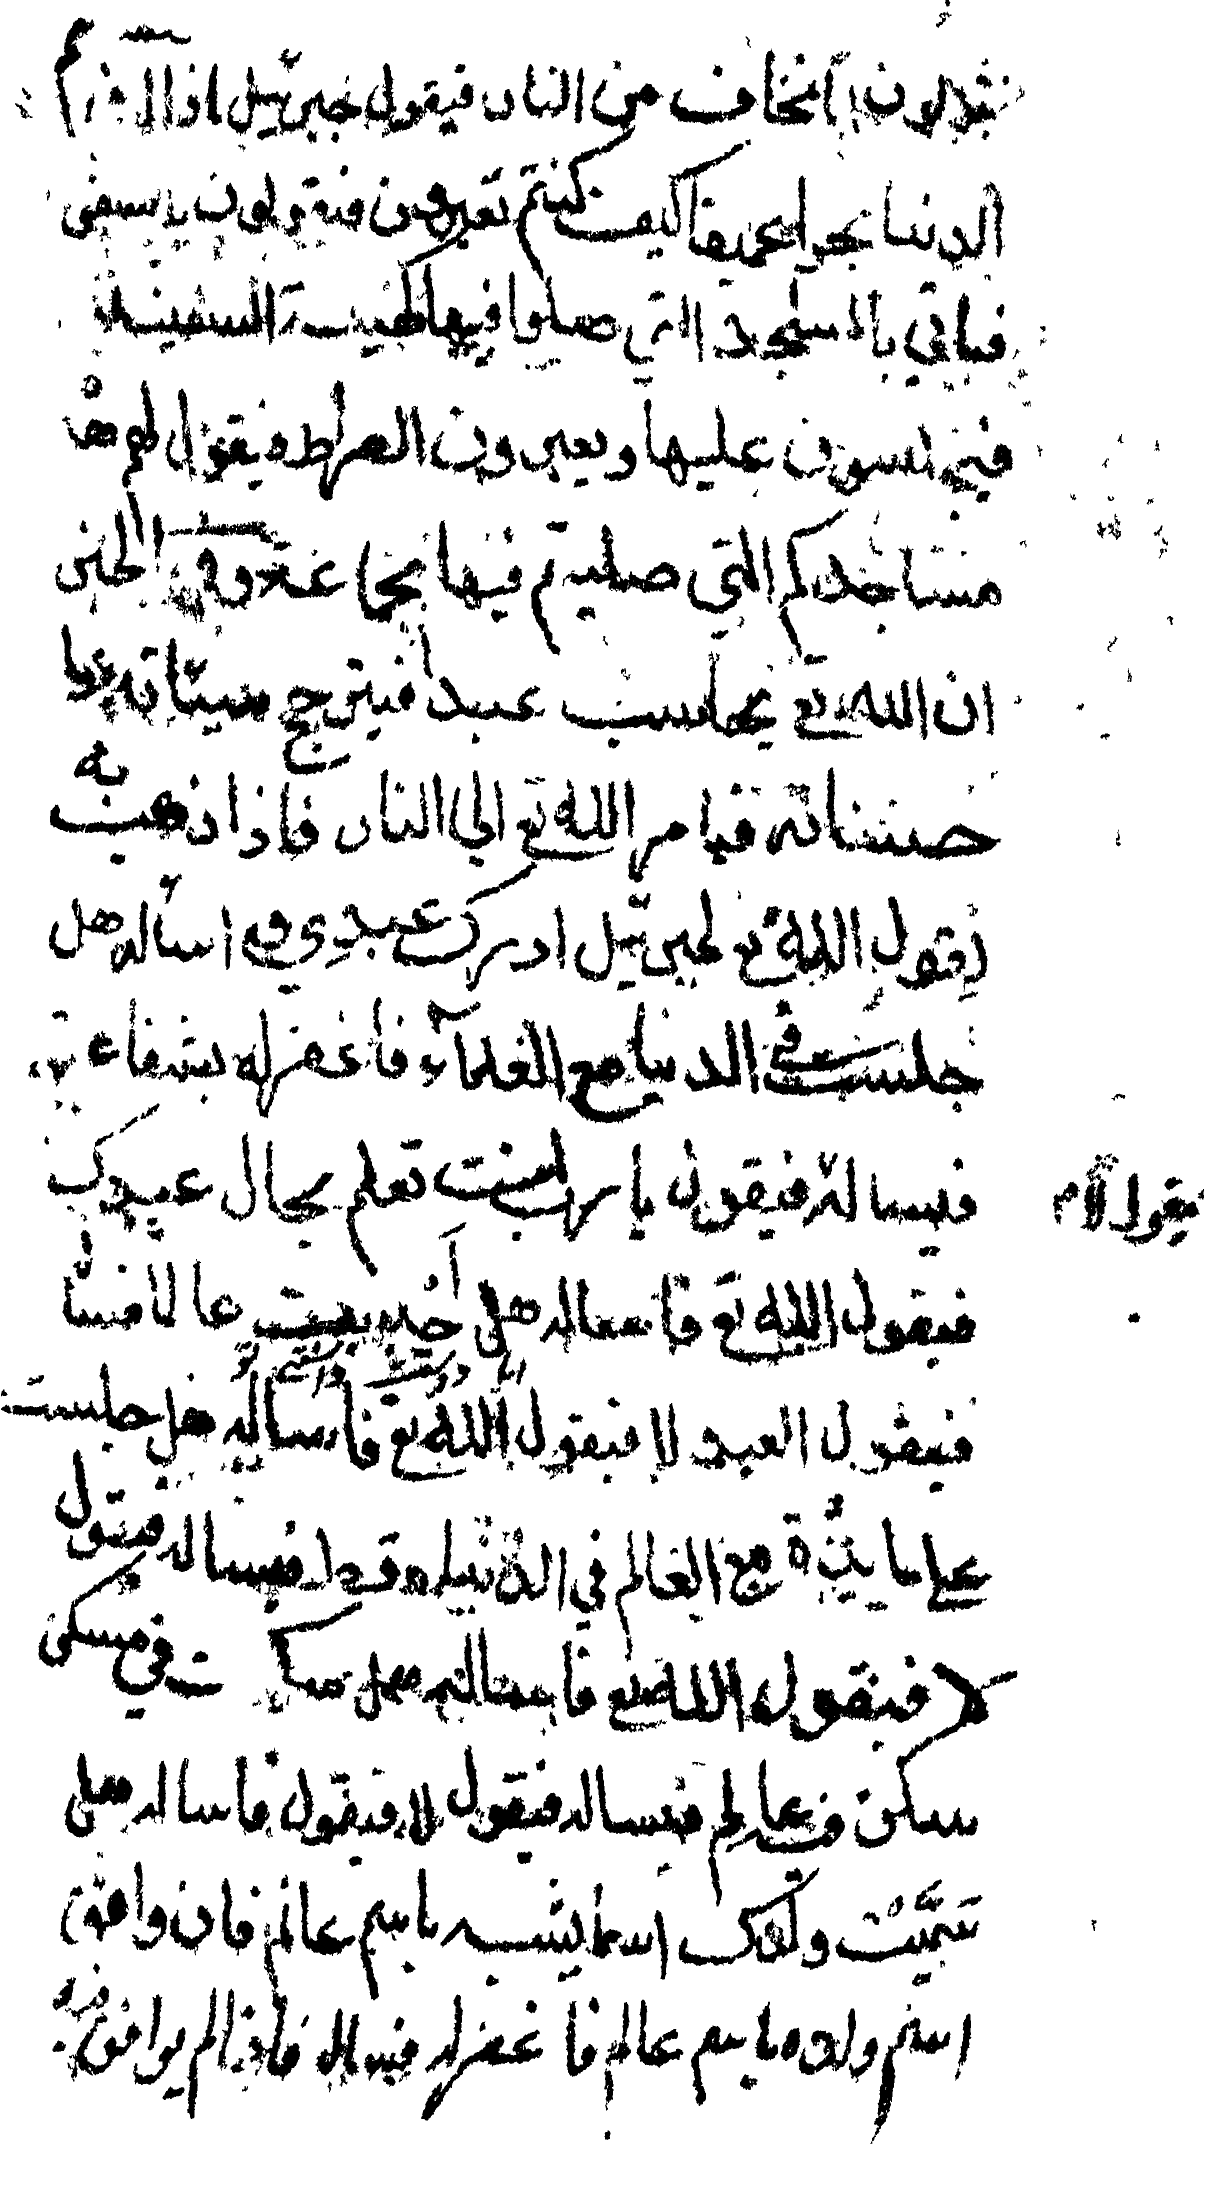 فيقولون انخاف من النار فيقول جبريل اذا لاقيتم
الدنيا بحرا عميقا كيف كنتم تعبرون فيقولون بالسفن
فياتي بالمسجد التي صلوا فيها كهيئة السفينة
فيجلسون عليها ويعبرون الصراط فيقول لهم هذا
مساجدكم التي صليتم فيها بجماعة وفي الخبر
ان الله تع يحاسب عبدا فيترجح سيئاته على
حسناته فيامر الله تع الى النار فاذا ذهب به
يقول الله تع لجبريل ادرك عبدي و اساله هل
جلست في الدنيا مع العلماء فاغفر له بشفاعته
فيساله فيقول يا رب انت تعلم بحال عبدك
فيقول الله تع فاساله هل احببت عالما فيساله
فيقول العبد لا فيقول الله تع فاساله هل جلست
على مايدة مع العالم في الدنيا قط فيساله فيقول
لا فيقول الله تع فاساله هل سكنت في مسكن
سكن فيه عالم فيساله فيقول لا فيقول فاساله هل
سميت ولدك اسما يشبه باسم عالم فان وافق
اسم ولده باسم عالم فاغفر له فيساله فاذا لم يوافق فيه
يقول لا م